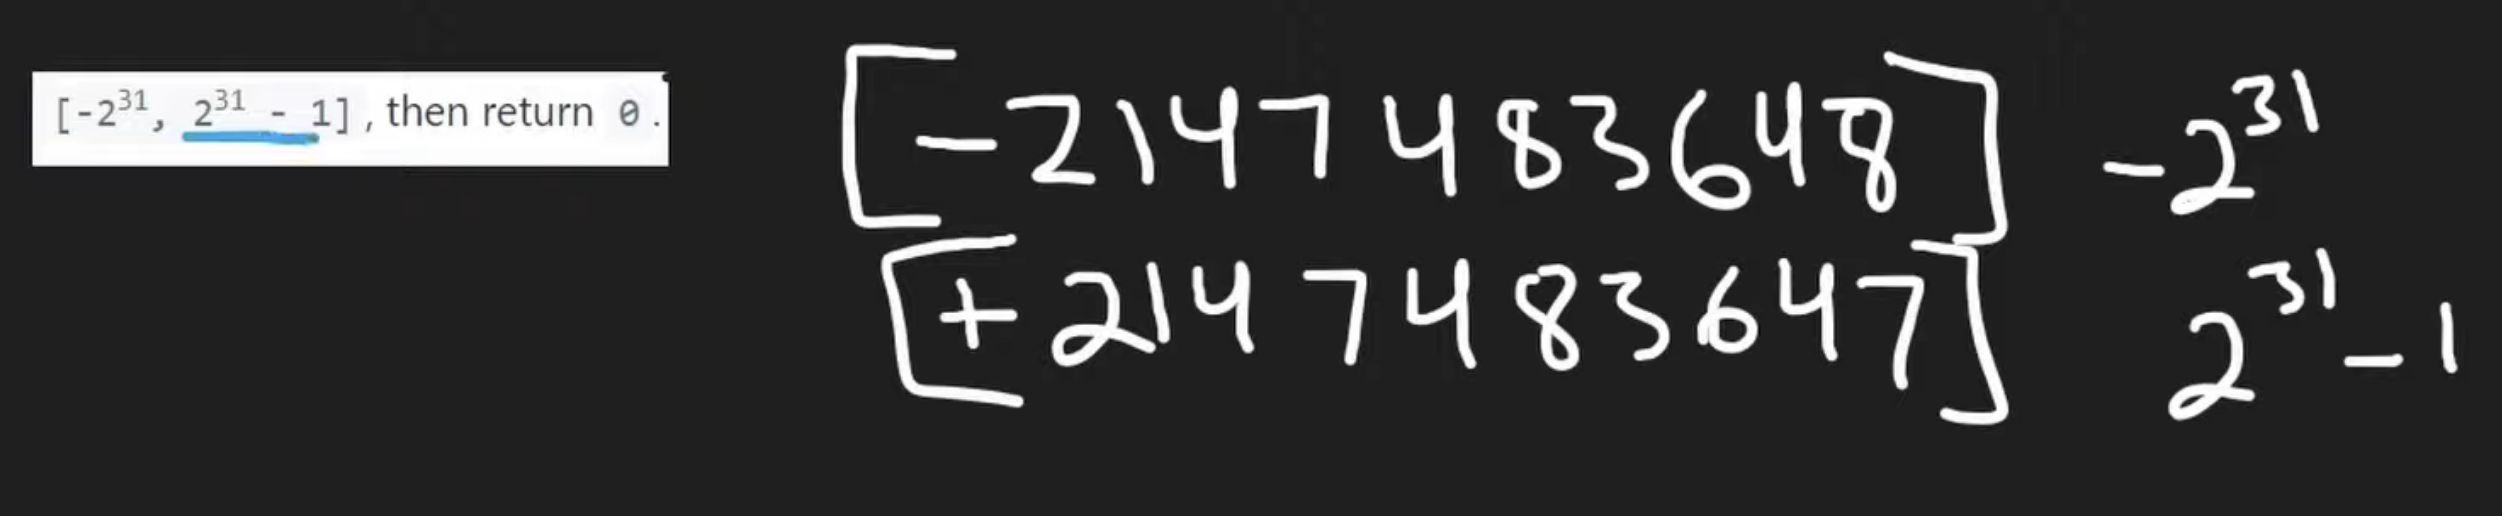 [-2³¹, 2³¹ - 1], then return 0.
[-2147483648] -2³¹
[+2147483647] 2³¹-1